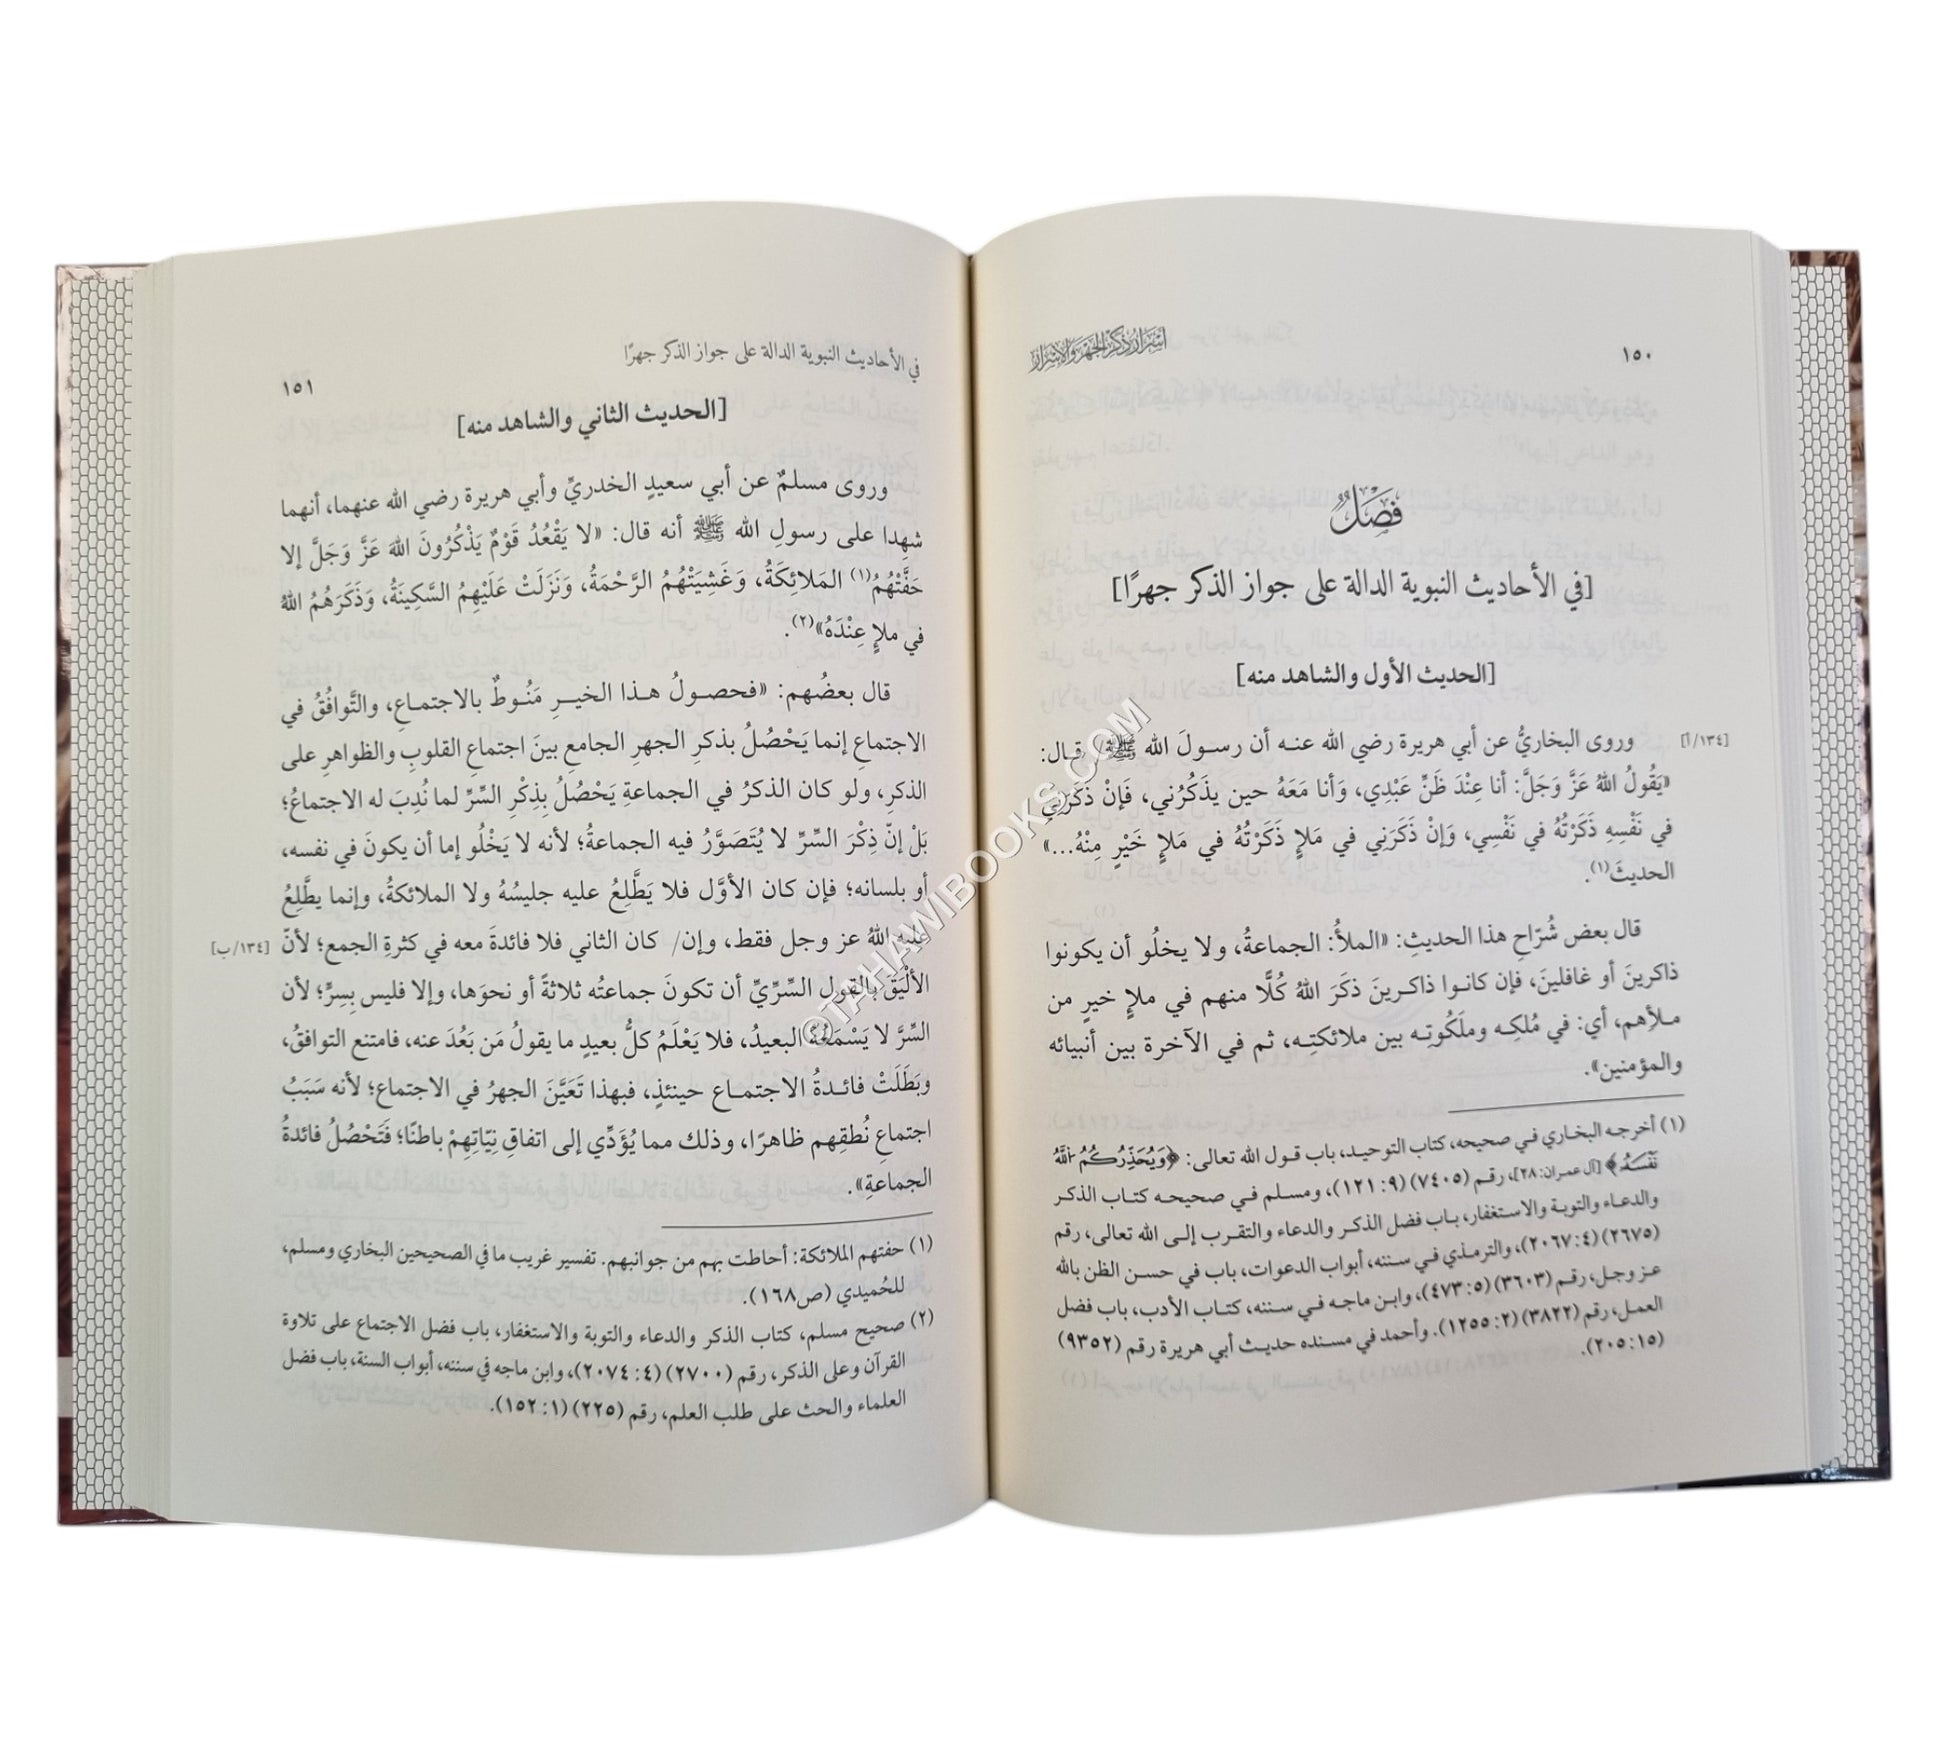 ١٥٠
أسرار ذكر الجهر والإسرار
فَصْلٌ
[في الأحاديث النبوية الدالة على جواز الذكر جهرًا]
[الحديث الأول والشاهد منه]
وروى البخاريُّ عن أبي هريرة رضي الله عنه أن رسولَ الله ﷺ/ قال: [١٣٤/أ]
«يَقُولُ اللهُ عَزَّ وَجَلَّ: أنا عِنْدَ ظَنِّ عَبْدِي، وَأنا مَعَهُ حين يذَكُرُني، فَإنْ ذَكَرَنِي
في نَفْسِهِ ذَكَرْتُهُ في نَفْسِي، وَإنْ ذَكَرَنِي في مَلإٍ ذَكَرْتُهُ في مَلإٍ خَيْرٍ مِنْهُ...»
الحديثَ(١).
قال بعض شُرّاحِ هذا الحديثِ: «الملأُ: الجماعةُ، ولا يخلُو أن يكونوا
ذاكرينَ أو غافلينَ، فإن كانوا ذاكرينَ ذكَرَ اللهُ كُلًّا منهم في ملإٍ خيرٍ من
ملأهم، أي: في مُلكِه وملَكُوتِه بين ملائكتِه، ثم في الآخرة بين أنبيائه
والمؤمنين».
(١) أخرجه البخاري في صحيحه، كتاب التوحيد، باب قول الله تعالى: ﴿وَيُحَذِّرُكُمُ اللَّهُ
نَفْسَهُ﴾ [آل عمران: ٢٨]، رقم (٧٤٠٥) (٩: ١٢١)، ومسلم في صحيحه كتاب الذكر
والدعاء والتوبة والاستغفار، باب فضل الذكر والدعاء والتقرب إلى الله تعالى، رقم
(٢٦٧٥) (٤: ٢٠٦٧)، والترمذي في سننه، أبواب الدعوات، باب في حسن الظن بالله
عز وجل، رقم (٣٦٠٣) (٥: ٤٧٣)، وابن ماجه في سننه، كتاب الأدب، باب فضل
العمل، رقم (٣٨٢٢) (٢: ١٢٥٥). وأحمد في مسنده حديث أبي هريرة رقم (٩٣٥٢)
(١٥: ٢٠٥).
في الأحاديث النبوية الدالة على جواز الذكر جهرًا
١٥١
[الحديث الثاني والشاهد منه]
وروى مسلمٌ عن أبي سعيدٍ الخدريِّ وأبي هريرة رضي الله عنهما، أنهما
شهدا على رسولِ الله ﷺ أنه قال: «لا يَقْعُدُ قَوْمٌ يَذْكُرُونَ اللهَ عَزَّ وَجَلَّ إلا
حَفَّتْهُمُ(١) المَلائِكَةُ، وَغَشِيَتْهُمُ الرَّحْمَةُ، وَنَزَلَتْ عَلَيْهِمُ السَّكِينَةُ، وَذَكَرَهُمُ اللهُ
في ملإٍ عِنْدَهُ»(٢).
قال بعضُهم: «فحصولُ هذا الخيرِ مَنُوطٌ بالاجتماعِ، والتَّوافُقُ في
الاجتماعِ إنما يَحْصُلُ بذكرِ الجهرِ الجامعِ بينَ اجتماعِ القلوبِ والظواهرِ على
الذكرِ، ولو كان الذكرُ في الجماعةِ يَحْصُلُ بِذِكْرِ السِّرِّ لما نُدِبَ له الاجتماعُ؛
بَلْ إنّ ذِكْرَ السِّرِّ لا يُتَصَوَّرُ فيه الجماعةُ؛ لأنه لا يَخْلُو إما أن يكونَ في نفسه،
أو بلسانه؛ فإن كان الأوَّل فلا يَطَّلِعُ عليه جليسُهُ ولا الملائكةُ، وإنما يطَّلِعُ
عليه اللهُ عز وجل فقط، وإن/ كان الثاني فلا فائدةَ معه في كثرةِ الجمع؛ لأنّ [١٣٤/ب]
الألْيَقَ بالقول السِّرِّيِّ أن تكونَ جماعتُه ثلاثةً أو نحوَها، وإلا فليس بِسِرٍّ؛ لأن
السِّرَّ لا يَسْمَعُهُ البعيدُ، فلا يَعْلَمُ كلُّ بعيدٍ ما يقولُ مَن بَعُدَ عنه، فامتنع التوافقُ،
وبَطَلَتْ فائدةُ الاجتماع حينئذٍ، فبهذا تَعَيَّنَ الجهرُ في الاجتماع؛ لأنه سَبَبُ
اجتماعِ نُطقِهم ظاهرًا، وذلك مما يُؤَدِّي إلى اتفاقِ نِيّاتِهِمْ باطنًا؛ فتَحْصُلُ فائدةُ
الجماعةِ».
(١) حفتهم الملائكة: أحاطت بهم من جوانبهم. تفسير غريب ما في الصحيحين البخاري ومسلم،
للحُميدي (ص١٦٨).
(٢) صحيح مسلم، كتاب الذكر والدعاء والتوبة والاستغفار، باب فضل الاجتماع على تلاوة
القرآن وعلى الذكر، رقم (٢٧٠٠) (٤: ٢٠٧٤)، وابن ماجه في سننه، أبواب السنة، باب فضل
العلماء والحث على طلب العلم، رقم (٢٢٥) (١: ١٥٢).
©TAHAWIBOOKS.COM